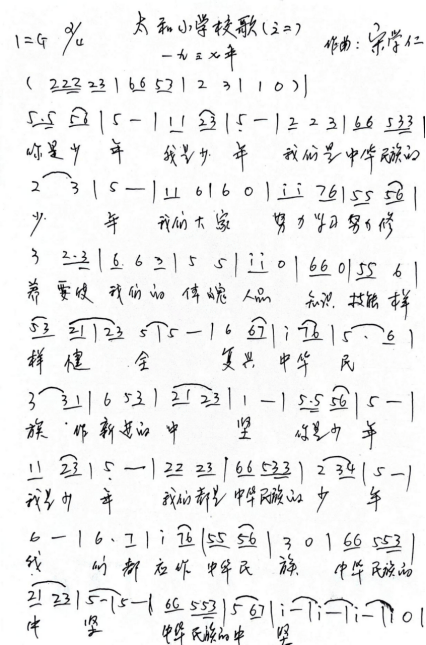 太和小学校歌(之二)
一九三×年
1=G 2/4 作曲: 宋学仁
( 222 23 | 66 53 | 2 3 | 1 1 0 ) |
5.5 56 | 5 - | 11 23 | 5 - | 2 2 3 | 66 533 |
你是少 年 我是少 年 我们是中华民族的
2 3 | 5 - | 11 6 | 6 0 | ii 76 | 55 56 |
少 年 我们大家 努力学习努力修
3 2.3 | 6. 6 3 | 5 5 | ii 0 | 66 0 | 55 6 |
养 要使 我们的 体魄 人品 知识 技能 样
53 21 | 23 5 | 5 - | 6 67 | i 76 | 5. 6 |
样 健 全 复兴 中华 民
3 31 | 6 53 | 21 23 | 1 - | 5.5 56 | 5 - |
族 作新进的中 坚 你是少 年
11 23 | 5 - | 22 23 | 66 533 | 2 34 | 5 - |
我是少 年 我们都是 中华民族的 少 年
6 - | 6. 7 | i 76 | 55 56 | 3 0 | 66 553 |
们 都 在作 中华民 族 中华民族的
21 23 | 5 - | 5 - | 66 553 | 5 67 | i - | i - | i - | i 0 |
中 坚 中华民族的中 坚